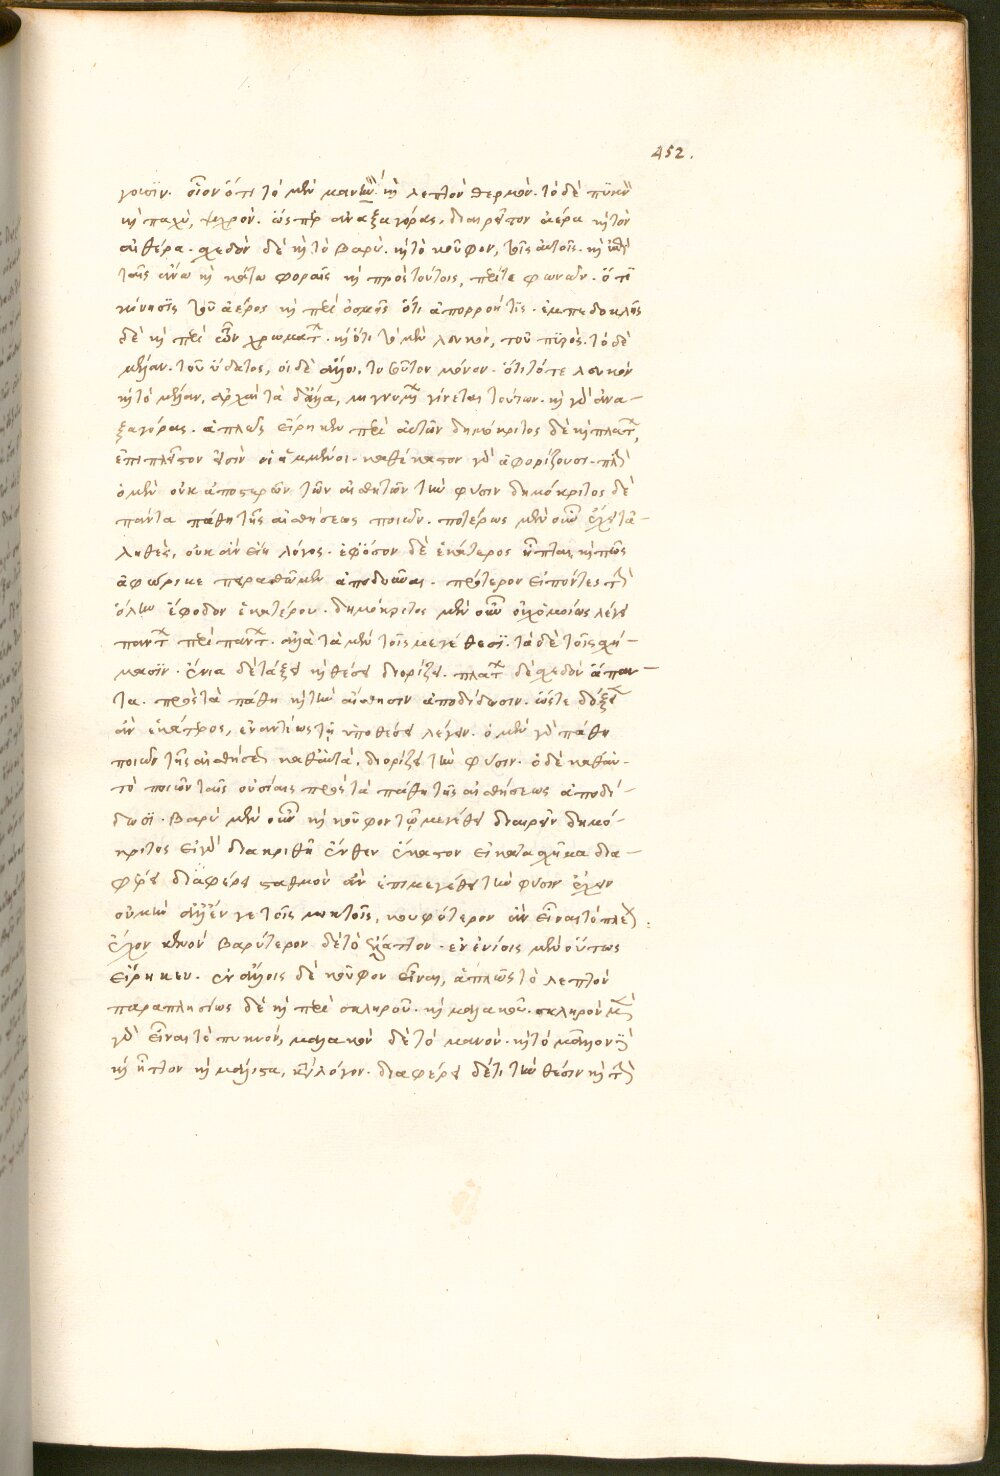 452.
γουσϊν. οἷον ὅτι τὸ μὲν μανὸν καὶ λεπτὸν θερμὸν. τὸ δὲ πϋκνὸν
καὶ παχὺ, ψυχρὸν. ὥσπερ ἀναξαγόρας, διαιρεῖ τὸν ἀέρα καὶ τὸν
αἰθέρα. σχεδὸν δὲ καὶ τὸ βαρὺ. καὶ τὸ κοῦφον, τοῖς αὐτοῖς. καὶ ἔτι
ταῖς ἄνω καὶ κάτω φοραῖς καὶ πρὸς τούτοις, περί τε φωνῶν. ὅτι
κίνησϊς τοῦ ἀέρος καὶ περὶ ὀσμῆς ὅτι ἀπορροή τις. ἐμπεδοκλῆς
δὲ καὶ περὶ τῶν χρωμάτων. καὶ ὅτι τὸ μὲν λευκὸν, τοῦ πϋρὸς. τὸ δὲ
μέλαν. τοῦ ὕδατος, οἱ δὲ ἄλλοι, τοσοῦτον μόνον. ὅτι τό τε λευκὸν
καὶ τὸ μέλαν, ἀρχαὶ τὰ δ' ἄλλα, μιγνυμένων γίνεται τούτων. καὶ γὰρ ἀνα-
ξαγόρας. ἁπλῶς εἴρηκεν περὶ αὐτῶν δημόκριτος δὲ καὶ πλάτων,
ἐπιπλεῖστον εἰσὶν οἱ ἡμμένοι. καθέκαστον γὰρ ἀφορίζουσι. πλὴν
ὁ μὲν οὐκ ἀποστερῶν τῶν αἰσθητῶν τὴν φύσιν δημόκριτος δὲ
πάντα πάθη τῆς αἰσθήσεως ποιῶν. ποτέρως μὲν οὖν ἔχει τἀ-
ληθὲς, οὐκ ἂν εἴη λόγος. ἐφόσον δὲ ἑκάτερος ἧπται, καὶ πῶς
ἀφώρικε πειραθῶμεν ἀποδοῦναι. πρότερον εἰπόντες τὴν
ὅλην ἔφοδον ἑκατέρου. δημόκριτος μὲν οὖν οὐχ ὁμοίως λέγει
πάντων περὶ πάντων. ἀλλὰ τὰ μὲν τοῖς μεγέθεσϊ. τὰ δὲ τοῖς σχή-
μασϊν. ἔνια δὲ τάξει καὶ θέσει διορίζει. πλάτων δὲ σχεδὸν ἅπαν-
τα. πρὸς τὰ πάθη καὶ τὴν αἴσθησιν ἀποδίδωσιν. ὥστε δόξειεν
ἂν ἑκάτερος, ἐναντίως τῇ ὑποθέσει λέγειν. ὁ μὲν γὰρ πάθη
ποιῶν τῆς αἰσθήσεως καθαὑτὰ, διορίζει τὴν φύσιν. ὁ δὲ καθαὑ-
τὸ ποιῶν ταῖς οὐσίαις πρὸς τὰ πάθη τῆς αἰσθήσεως ἀποδί-
δωσϊ. βαρὺ μὲν οὖν καὶ κοῦφον τῷ μεγέθει διαιρεῖ δημό-
κριτος εἰ γὰρ διακριθῇ ἔνθεν ἕκαστον εἰ κατα σχῆμα δια-
φέρει διαφέρει σταθμὸν ἂν ἐπιμεγέθει τὴν φύσιν ἔχειν
οὐ μὴν ἀλλ' ἔν γε τοῖς μικτοῖς, κουφότερον ἂν εἶναι τὸ πλέον
ἔχον κενὸν βαρύτερον δὲ τὸ ἔλαττον. ἐν ἐνίοις μὲν οὕτως
εἴρηκεν. ἐν ἄλλοις δὲ κοῦφον εἶναι, ἁπλῶς τὸ λεπτὸν
παραπλησίως δὲ καὶ περὶ σκληροῦ. καὶ μαλακοῦ. σκληρὸν μὲν
γὰρ εἶναι τὸ πυκνὸν, μαλακὸν δὲ τὸ μανὸν. καὶ τὸ μᾶλλον δὲ
καὶ ἧττον καὶ μάλιστα, κατὰ λόγον. διαφέρει δέ τι τὴν θέσιν καὶ τὴν